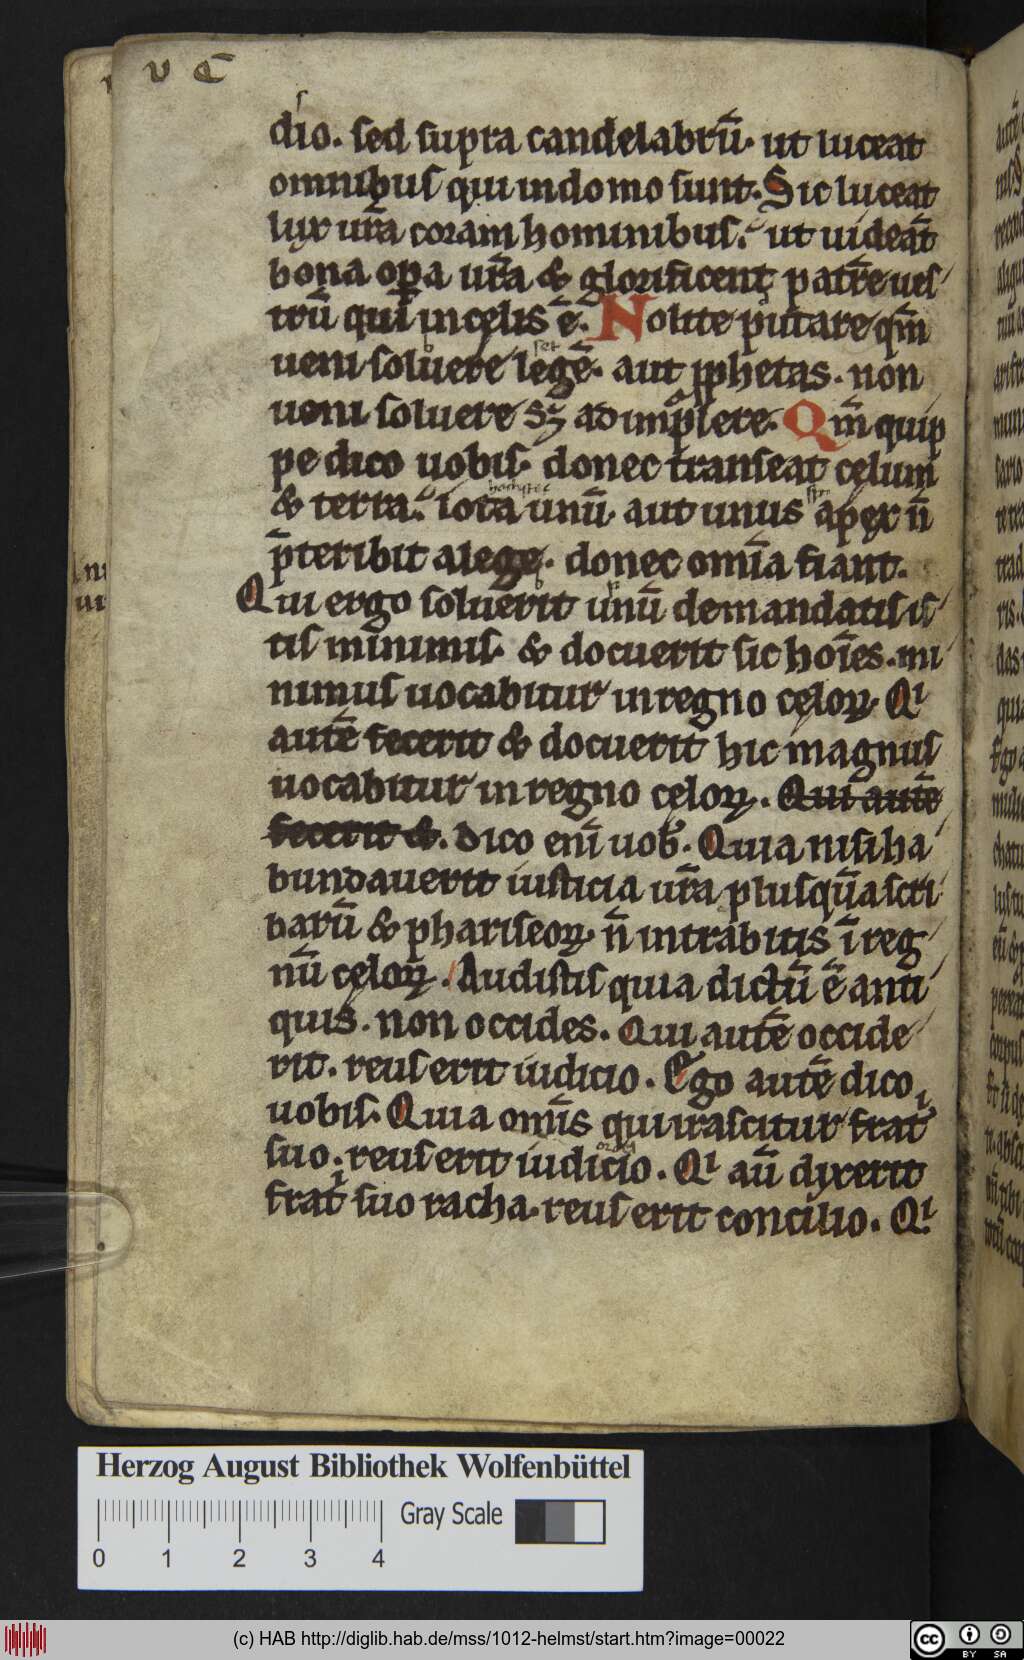 v C
dio. sed supra candelabrū. ut luceat
omnibus qui in domo sunt. Sic luceat
lux ur̄a coram hominibus. ut uideāt
bona opa ur̄a & glorificent patrē ues
trū qui in celis ē. Nolite putare qm̄
ueni soluere legē. aut ꝓphetas. non
ueni soluere sꝫ adimplere. Qm̄ quip
pe dico uobis. donec transeat celum
& terra. iota unū. aut unus apex n̄
p̄teribit a lege. donec om̄ia fiant.
Qui ergo soluerit unū de mandatis is
tis minimis. & docuerit sic hoīes. mi
nimus uocabitur in regno celoꝝ. Qi
autē fecerit & docuerit hic magnus
uocabitur in regno celoꝝ. Qui autē
fecerit &. Dico enī uob. Quia nisi ha
bundauerit iusticia ur̄a plusquā scri
barū & phariseoꝝ. n̄ intrabitis ī reg
nū celoꝝ. Audistis quia dictū ē anti
quis. non occides. Qui autē occide
rit. reus erit iudicio. Ego autē dico
uobis. Quia omīs qui irascitur frat
suo. reus erit iudicio. Qi aū dixerit
frat suo racha. reus erit concilio. Qi
Herzog August Bibliothek Wolfenbüttel
Gray Scale
0 1 2 3 4
(c) HAB http://diglib.hab.de/mss/1012-helmst/start.htm?image=00022
cc BY SA